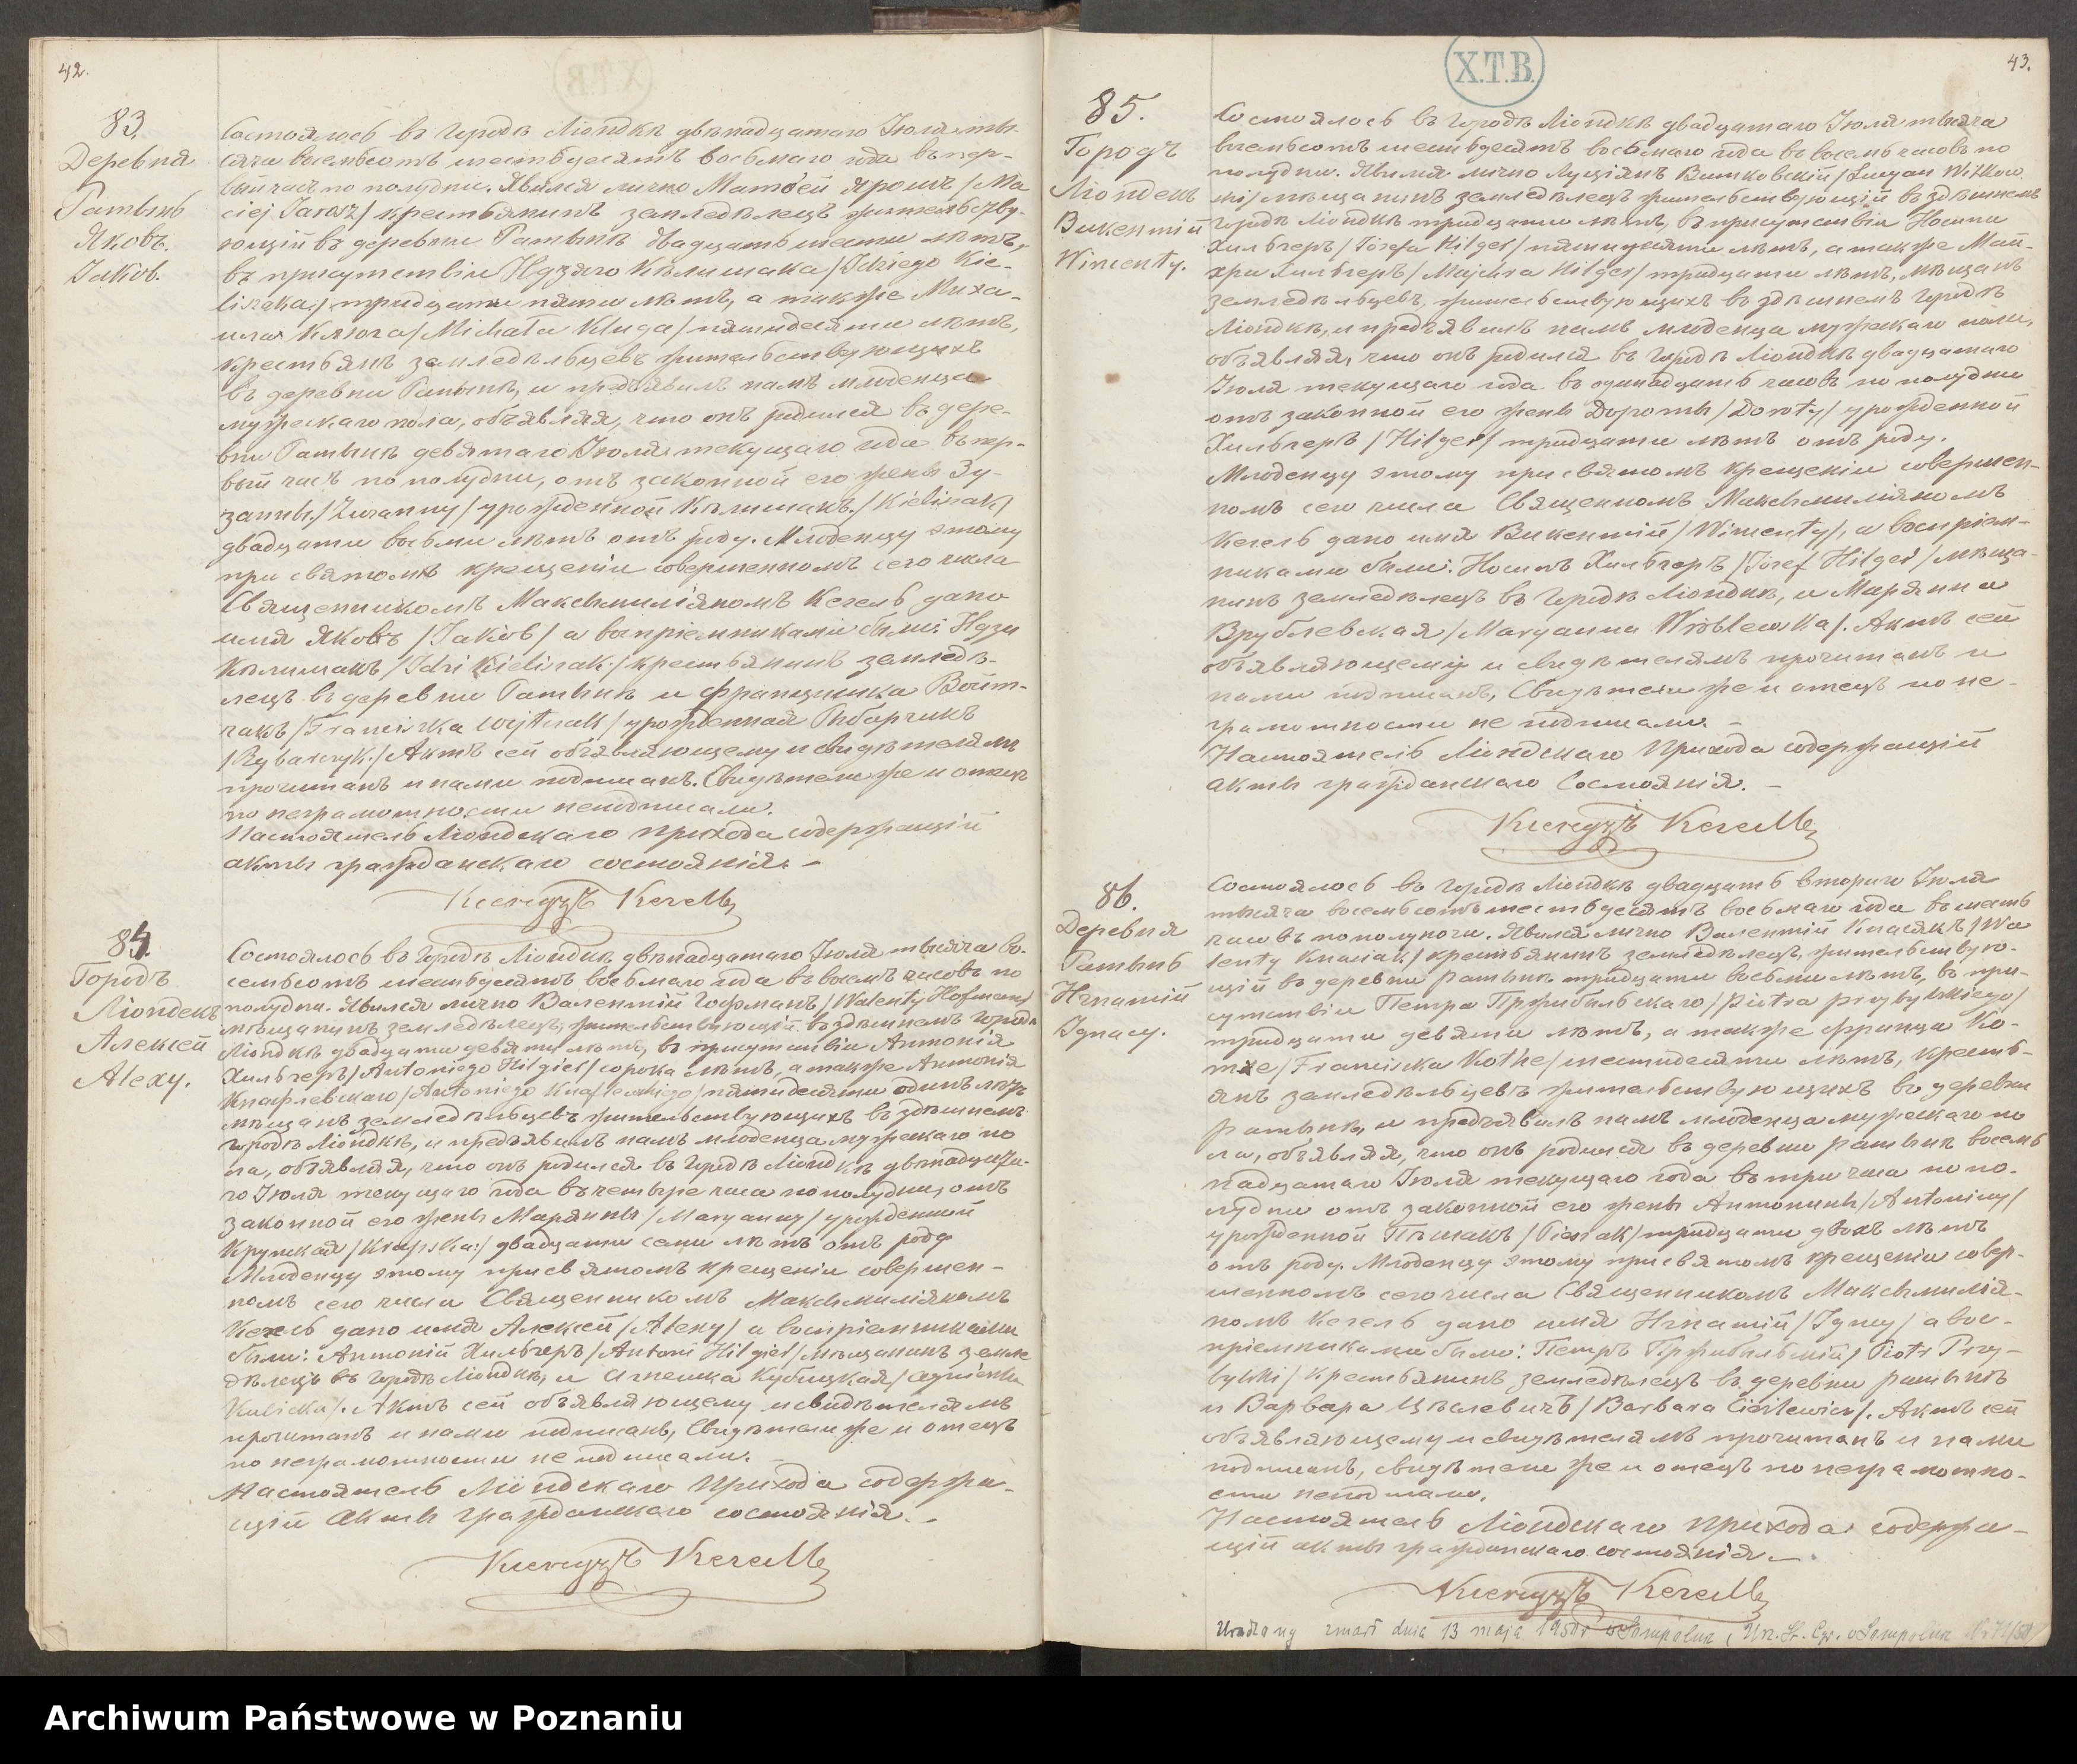 42.
83.
Деревня
Ратынь
Яковъ.
Jakób.
Состоялось въ городѣ Ліондкѣ двѣнадцатаго Іюля ты-
сяча восемьсотъ шестьдесятъ восьмаго года въ пер-
вый часъ по полудни. Явился лично Матѳей Ярошъ /Ma
ciej Jarosz/ крестьянинъ земледѣлецъ жительству-
ющій въ деревни Ратынѣ двадцать шести лѣтъ,
въ присутствіи Идзяго Кѣлишака /Idziego Kie-
liszaka/ тридцати пяти лѣтъ, а также Миха-
ила /Michała Kluga/ пятидесяти лѣтъ,
крестьянъ земледѣльцевъ жительствующихъ
въ деревни Ратынѣ, и предъявилъ намъ младенца
мужескаго пола, объявляя, что онъ родился въ дере-
вни Ратынѣ девятаго Іюля текущаго года въ пер-
вый часъ по полудни, отъ законной его жены Зу-
занны /Zuzanny/ урожденной Кѣлишакъ /Kieliszak/
двадцати восьми лѣтъ отъ роду. Младенцу этому
при святомъ крещеніи совершенномъ сего числа
Священникомъ Максымиліяномъ Кегель дано
имя Яковъ /Jakób/ а воспріемниками были: Идзи
Кѣлишакъ /Idzi Kieliszak/ крестьянинъ земледѣ-
лецъ въ деревни Ратынѣ и Францишка Войт-
чакъ /Franciszka Wojtczak/ урожденная Рыбарчикъ
/Rybarczyk/ Актъ сей объявляющему и свидѣтелямъ
прочитанъ и нами подписанъ. Свидѣтели же и отецъ
по неграмотности неподписали.
Настоятель Ліондскаго прихода содержащій
акты гражданскаго состоянія.
84.
Городъ
Ліондекъ
Алексей
Alexy.
Состоялось въ городѣ Ліондкѣ двѣнадцатаго Іюля тысяча во-
семьсотъ шестьдесятъ восьмаго года въ восемь часовъ по
полудни. Явился лично Валентій Гофманъ /Walenty Hofmann/
мѣщанинъ земледѣлецъ, жительствующій въ здѣшнемъ городѣ
Ліондкѣ двадцати девяти лѣтъ, въ присутствіи Антонія
Хильгеръ /Antoniego Hilgier/ сорока лѣтъ, а также Антонія
Кнафлевскаго /Antoniego Knaflewskiego/ пятидесяти одинъ лѣтъ
мѣщанъ земледѣльцевъ жительствующихъ въ здѣшнемъ
городѣ Ліондкѣ, и предъявилъ намъ младенца мужескаго по
ла, объявляя, что онъ родился въ городѣ Ліондкѣ двѣнадцата-
го Іюля текущаго года въ четыре часа по полудни, отъ
законной его жены Марянны /Maryanny/ урожденной
Крупская /Krupska/ двадцати семи лѣтъ отъ роду
Младенцу этому при святомъ крещеніи совершен-
номъ сего числа Священникомъ Максымиліяномъ
Кегель дано имя Алексей /Alexy/ а воспріемниками
были: Антоній Хильгеръ /Antoni Hilgier/ мѣщанинъ земле
дѣлецъ въ городѣ Ліондкѣ, и Агнешка Кубицкая /Agnieszka
Kubicka/. Актъ сей объявляющему и свидѣтелямъ
прочитанъ и нами подписанъ, Свидѣтели же и отецъ
по неграмотности не подписали.
Настоятель Ліондскаго прихода содержа-
щій акты гражданскаго состоянія.
Х.Т.В.
43.
85.
Городъ
Ліондекъ
Викентій
Wincenty.
Состоялось въ городѣ Ліондкѣ двадцатаго Іюля тысяча
восемьсотъ шестьдесятъ восьмаго года въ восемь часовъ по
полудни. Явился лично Луціянъ Витковскій /Lucyan Witkow
ski/ мѣщанинъ земледѣлецъ жительствующій въ здѣшнемъ
городѣ Ліондкѣ тридцати лѣтъ, въ присутствіи Іосипа
Хильгеръ /Józefa Hilger/ пятидесяти лѣтъ, а также Май-
хра Хильгеръ /Majchra Hilger/ тридцати лѣтъ, мѣщанъ
земледѣльцевъ, жительствующихъ въ здѣшнемъ городѣ
Ліондкѣ, и предъявилъ намъ младенца мужескаго пола,
объявляя, что онъ родился въ городѣ Ліондкѣ двадцатаго
Іюля текущаго года въ одинадцать часовъ по полудни
отъ законной его жены Дороты /Doroty/ урожденной
Хильгеръ /Hilger/ тридцати лѣтъ отъ роду.
Младенцу этому при святомъ крещеніи совершен-
номъ сего числа Священномъ Максымиліяномъ
Кегель дано имя Викентій /Wincenty/, а воспріем-
никами были: Іосипъ Хильгеръ /Józef Hilger/ мѣща-
нинъ земледѣлецъ въ городѣ Ліондкѣ, и Марянна
Врублевская /Maryanna Wróblewska/. Актъ сей
объявляющему и свидѣтелямъ прочитанъ и
нами подписанъ, Свидѣтели же и отецъ по не-
грамотности не подписали.
Настоятель Ліондскаго Прихода содержащій
акты гражданскаго Состоянія.
86.
Деревня
Ратынь
Игнатій
Ignacy.
Состоялось въ городѣ Ліондкѣ двадцать втораго Іюля
тысяча восемьсотъ шестьдесятъ восьмаго года въ шесть
часовъ по полуночи. Явился лично Валентій Кнасякъ /Wa
lenty Knasiak/ крестьянинъ земледѣлецъ, жительствую-
щій въ деревни Ратынѣ тридцати восьми лѣтъ, въ при-
сутствіи Петра Пржибыльскаго /Piotra Przybylskiego/
тридцати девяти лѣтъ, а также Франца Ко-
тхе /Franciszka Kothe/ шестидесяти лѣтъ, кресть-
янъ земледѣльцевъ жительствующихъ въ деревни
Ратынѣ, и предъявилъ намъ младенца мужескаго по
ла, объявляя, что онъ родился въ деревни Ратынѣ восемь
надцатаго Іюля текущаго года въ три часа по по-
лудни отъ законной его жены Антонины /Antoniny/
урожденной Пѣшакъ /Piesiak/ тридцати двохъ лѣтъ
отъ роду. Младенцу этому при святомъ крещеніи совер-
шенномъ сего числа Священникомъ Максымилія-
номъ Кегель дано имя Игнатій /Ignacy/ а вос-
пріемниками были: Петръ Пржибыльскій /Piotr Przy-
bylski/ крестьянинъ земледѣлецъ въ деревни Ратынѣ
и Варвара Цѣслевичъ /Barbara Cieslewicz/. Актъ сей
объявляющему и свидѣтелямъ прочитанъ и нами
подписанъ, свидѣтели же и отецъ по неграмотно-
сти неподписали.
Настоятель Ліондскаго прихода содержа-
щій акты гражданскаго состоянія.
zmarł dnia 13 maja 1950r w Sompolnie
Archiwum Państwowe w Poznaniu